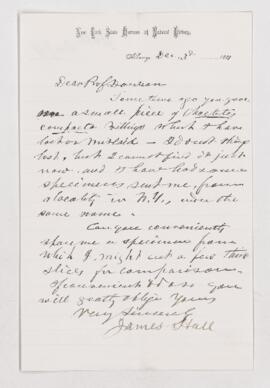 New York State Museum of Natural History,
Albany Dec 3d 188
Dear Prof Dawson
Some time ago you gave
me a small piece of
compacta Billings which I have
lost or mislaid — I do not think
lost, but I cannot find it just
now. and I have had some
specimens sent me, from
a locality in N.Y., under the
same name.
Can you conveniently
spare me a specimen from
which I might cut a few thin
slices for comparison.
If convenient to do so you
will greatly oblige Yours
Very Sincerely
James Hall